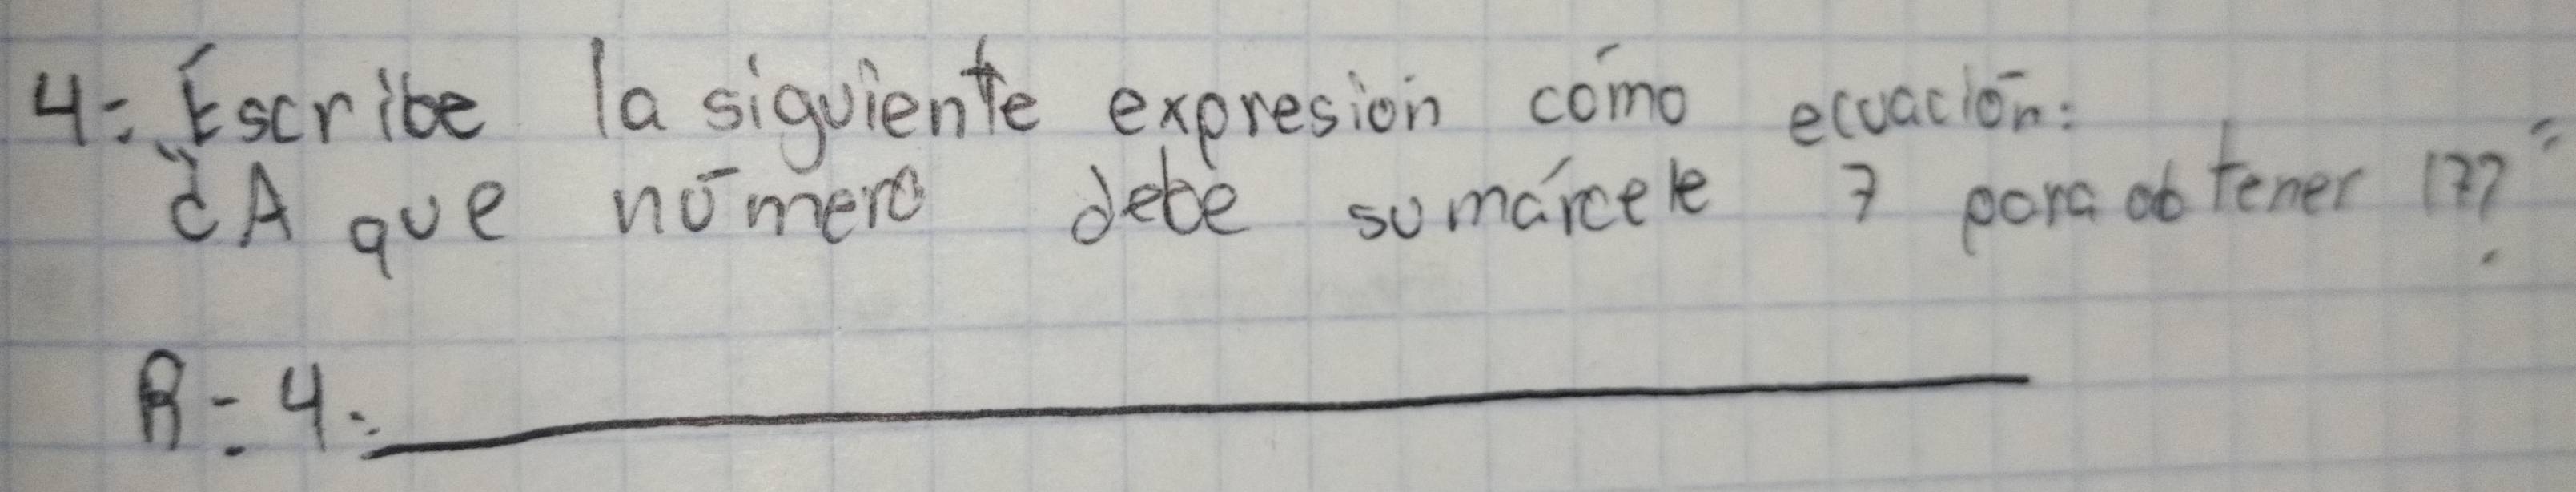 4:. Escribe la siguiente expresión cómo ecuación:
"¿A que número debe sumárcele 7 para obtener 17?"
R=4: